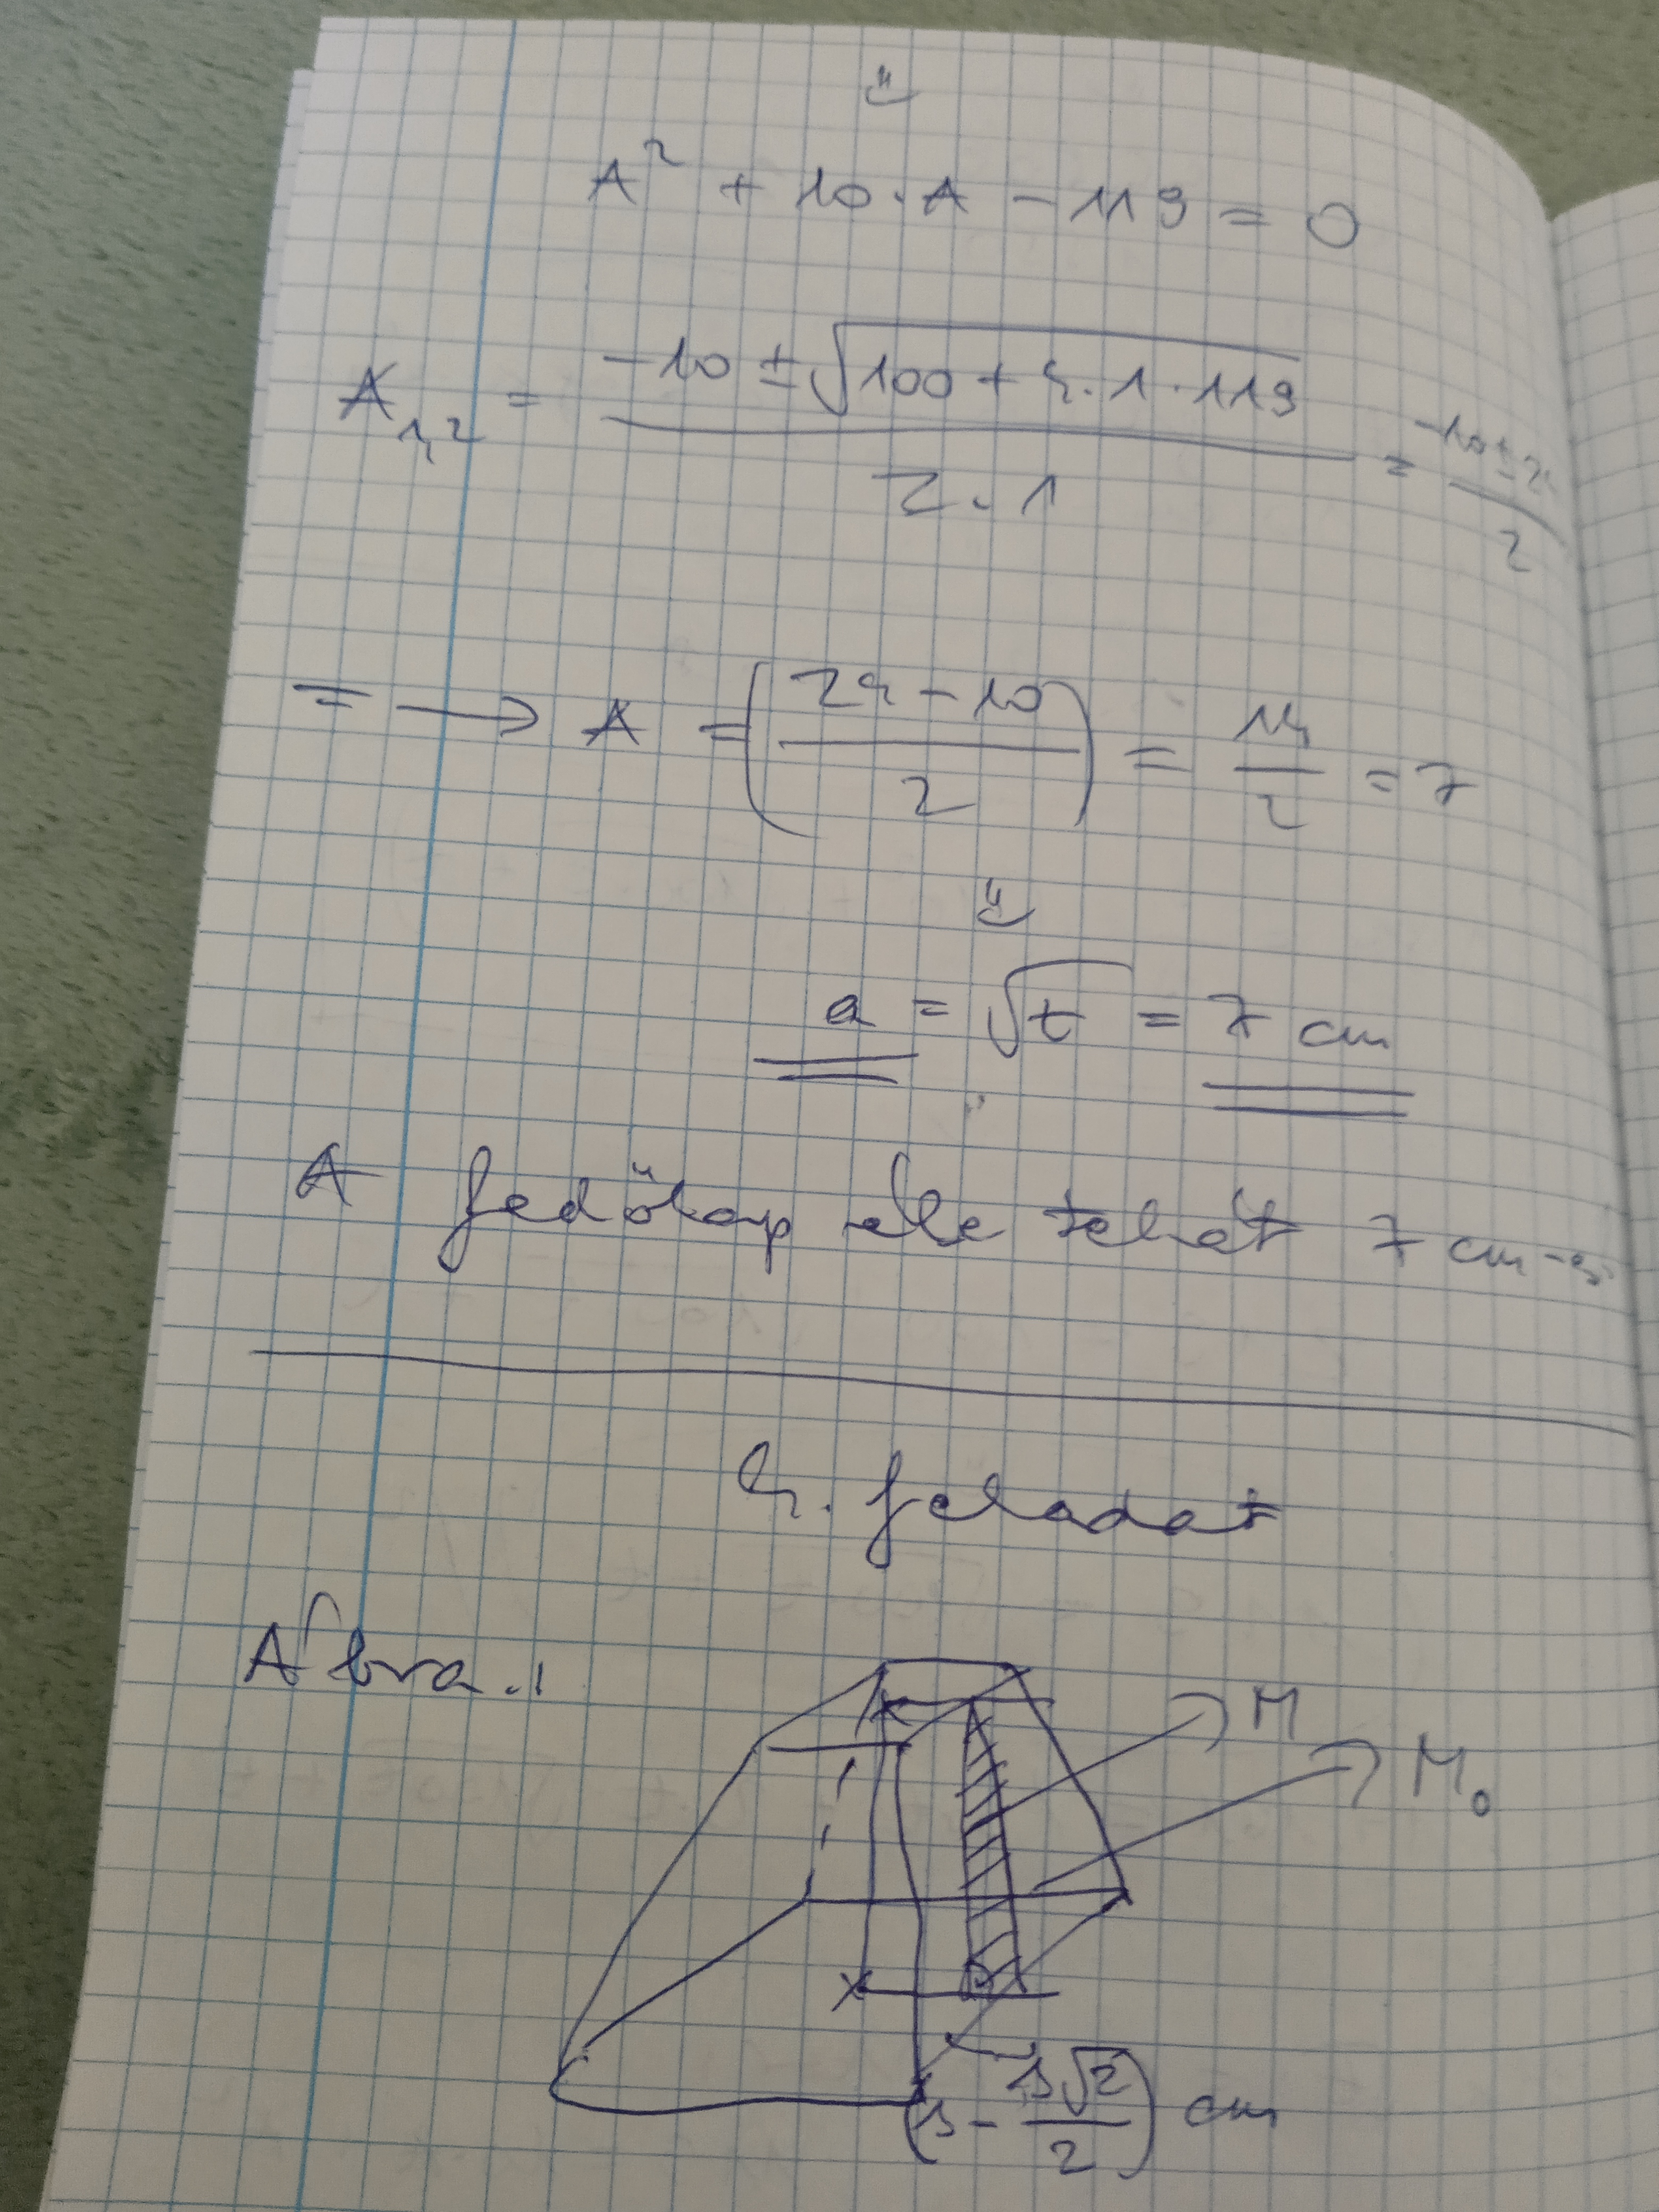 A² + 10·A - 119 = 0
A₁,₂ = (-10 ± √(100 + 4·1·119)) / (2·1) = (-10 ± 24) / 2
= → A = ((24 - 10) / 2) = 14/2 = 7
a = √t = 7 cm
A fedőlap éle tehát 7 cm-es
4. feladat
Ábra:
M
M₀
(3 - 3√2/2) cm